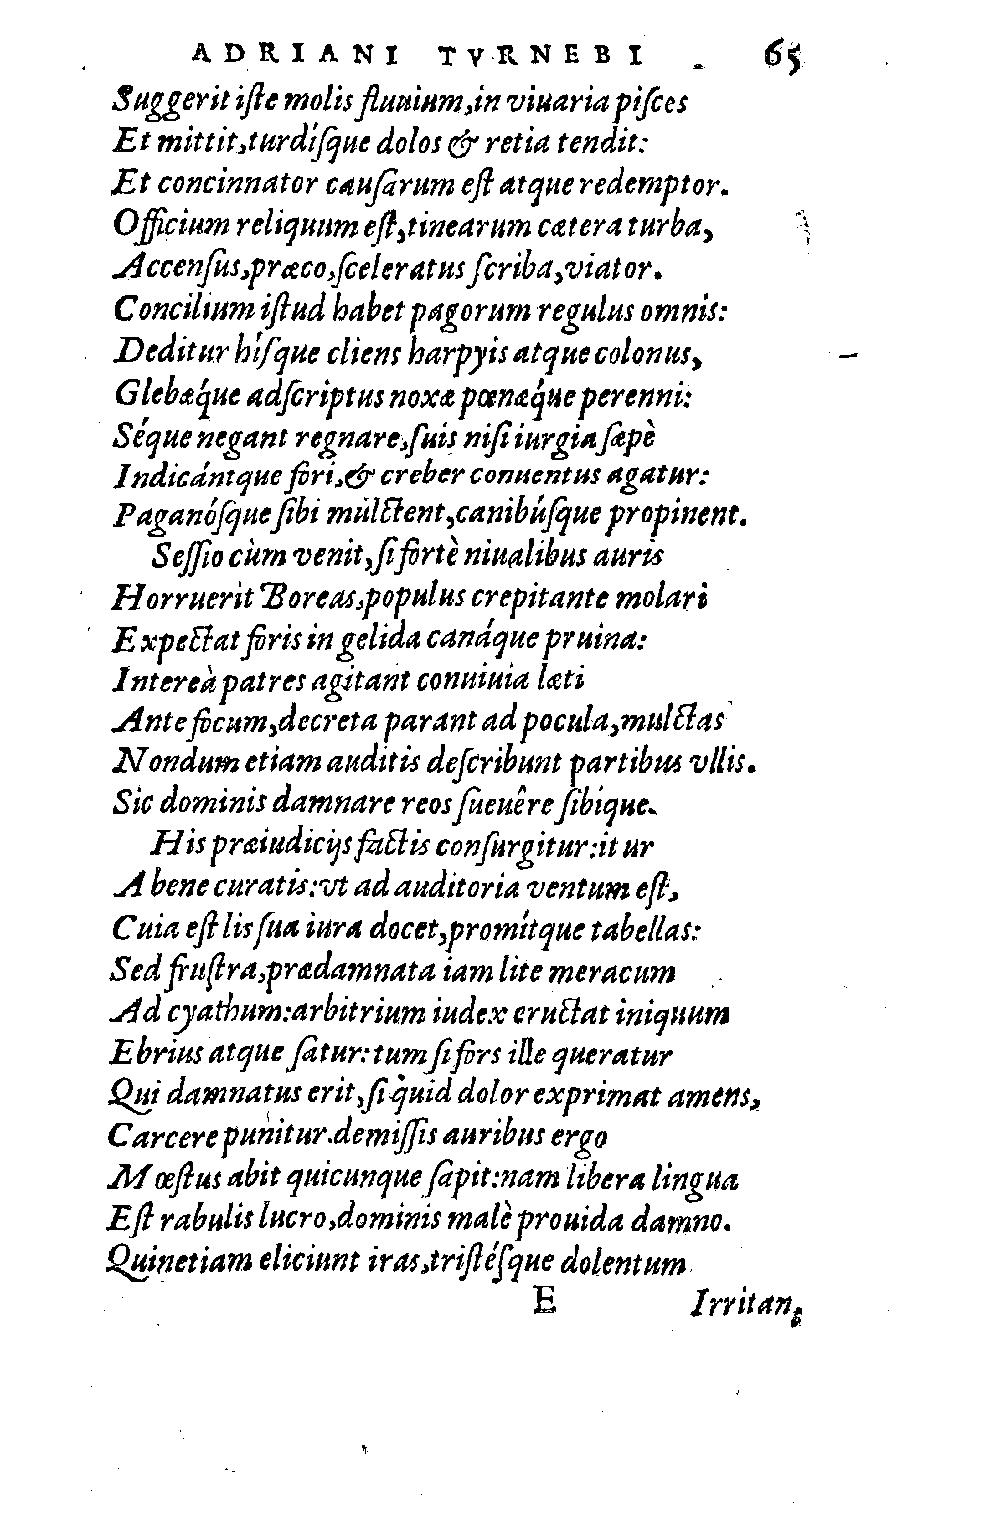 ADRIANI TVRNEBI 65
Suggerit iſte molis fluuium, in viuaria piſces
Et mittit, turdíſque dolos & retia tendit:
Et concinnator cauſarum eſt atque redemptor.
Officium reliquum eſt, tinearum cætera turba,
Accenſus, præco, ſceleratus ſcriba, viator.
Concilium iſtud habet pagorum regulus omnis:
Deditur híſque cliens harpyis atque colonus,
Glebæque adſcriptus noxæ pœnæque perenni:
Séque negant regnare, ſuis niſi iurgia ſæpè
Indicántque fori, & creber conuentus agatur:
Paganóſque ſibi múlctent, canibúſque propinent.
Seſſio cùm venit, ſi fortè niualibus auris
Horruerit Boreas, populus crepitante molari
Expectat foris in gelida canáque pruina:
Intereà patres agitant conuiuia læti
Ante focum, decreta parant ad pocula, mulctas
Nondum etiam auditis deſcribunt partibus vllis.
Sic dominis damnare reos ſueuêre ſibíque.
His præiudicijs factis conſurgitur: itur
A bene curatis: vt ad auditoria ventum eſt,
Cuia eſt lis ſua iura docet, promítque tabellas:
Sed fruſtra, prædamnata iam lite meracum
Ad cyathum: arbitrium iudex eructat iniquum
Ebrius atque ſatur: tum ſi fors ille queratur
Qui damnatus erit, ſi quid dolor exprimat amens,
Carcere punitur. demiſſis auribus ergo
Mœſtus abit quicunque ſapit: nam libera lingua
Eſt rabulis lucro, dominis malè prouida damno.
Quinetiam eliciunt iras, triſtéſque dolentum
E Irritan,